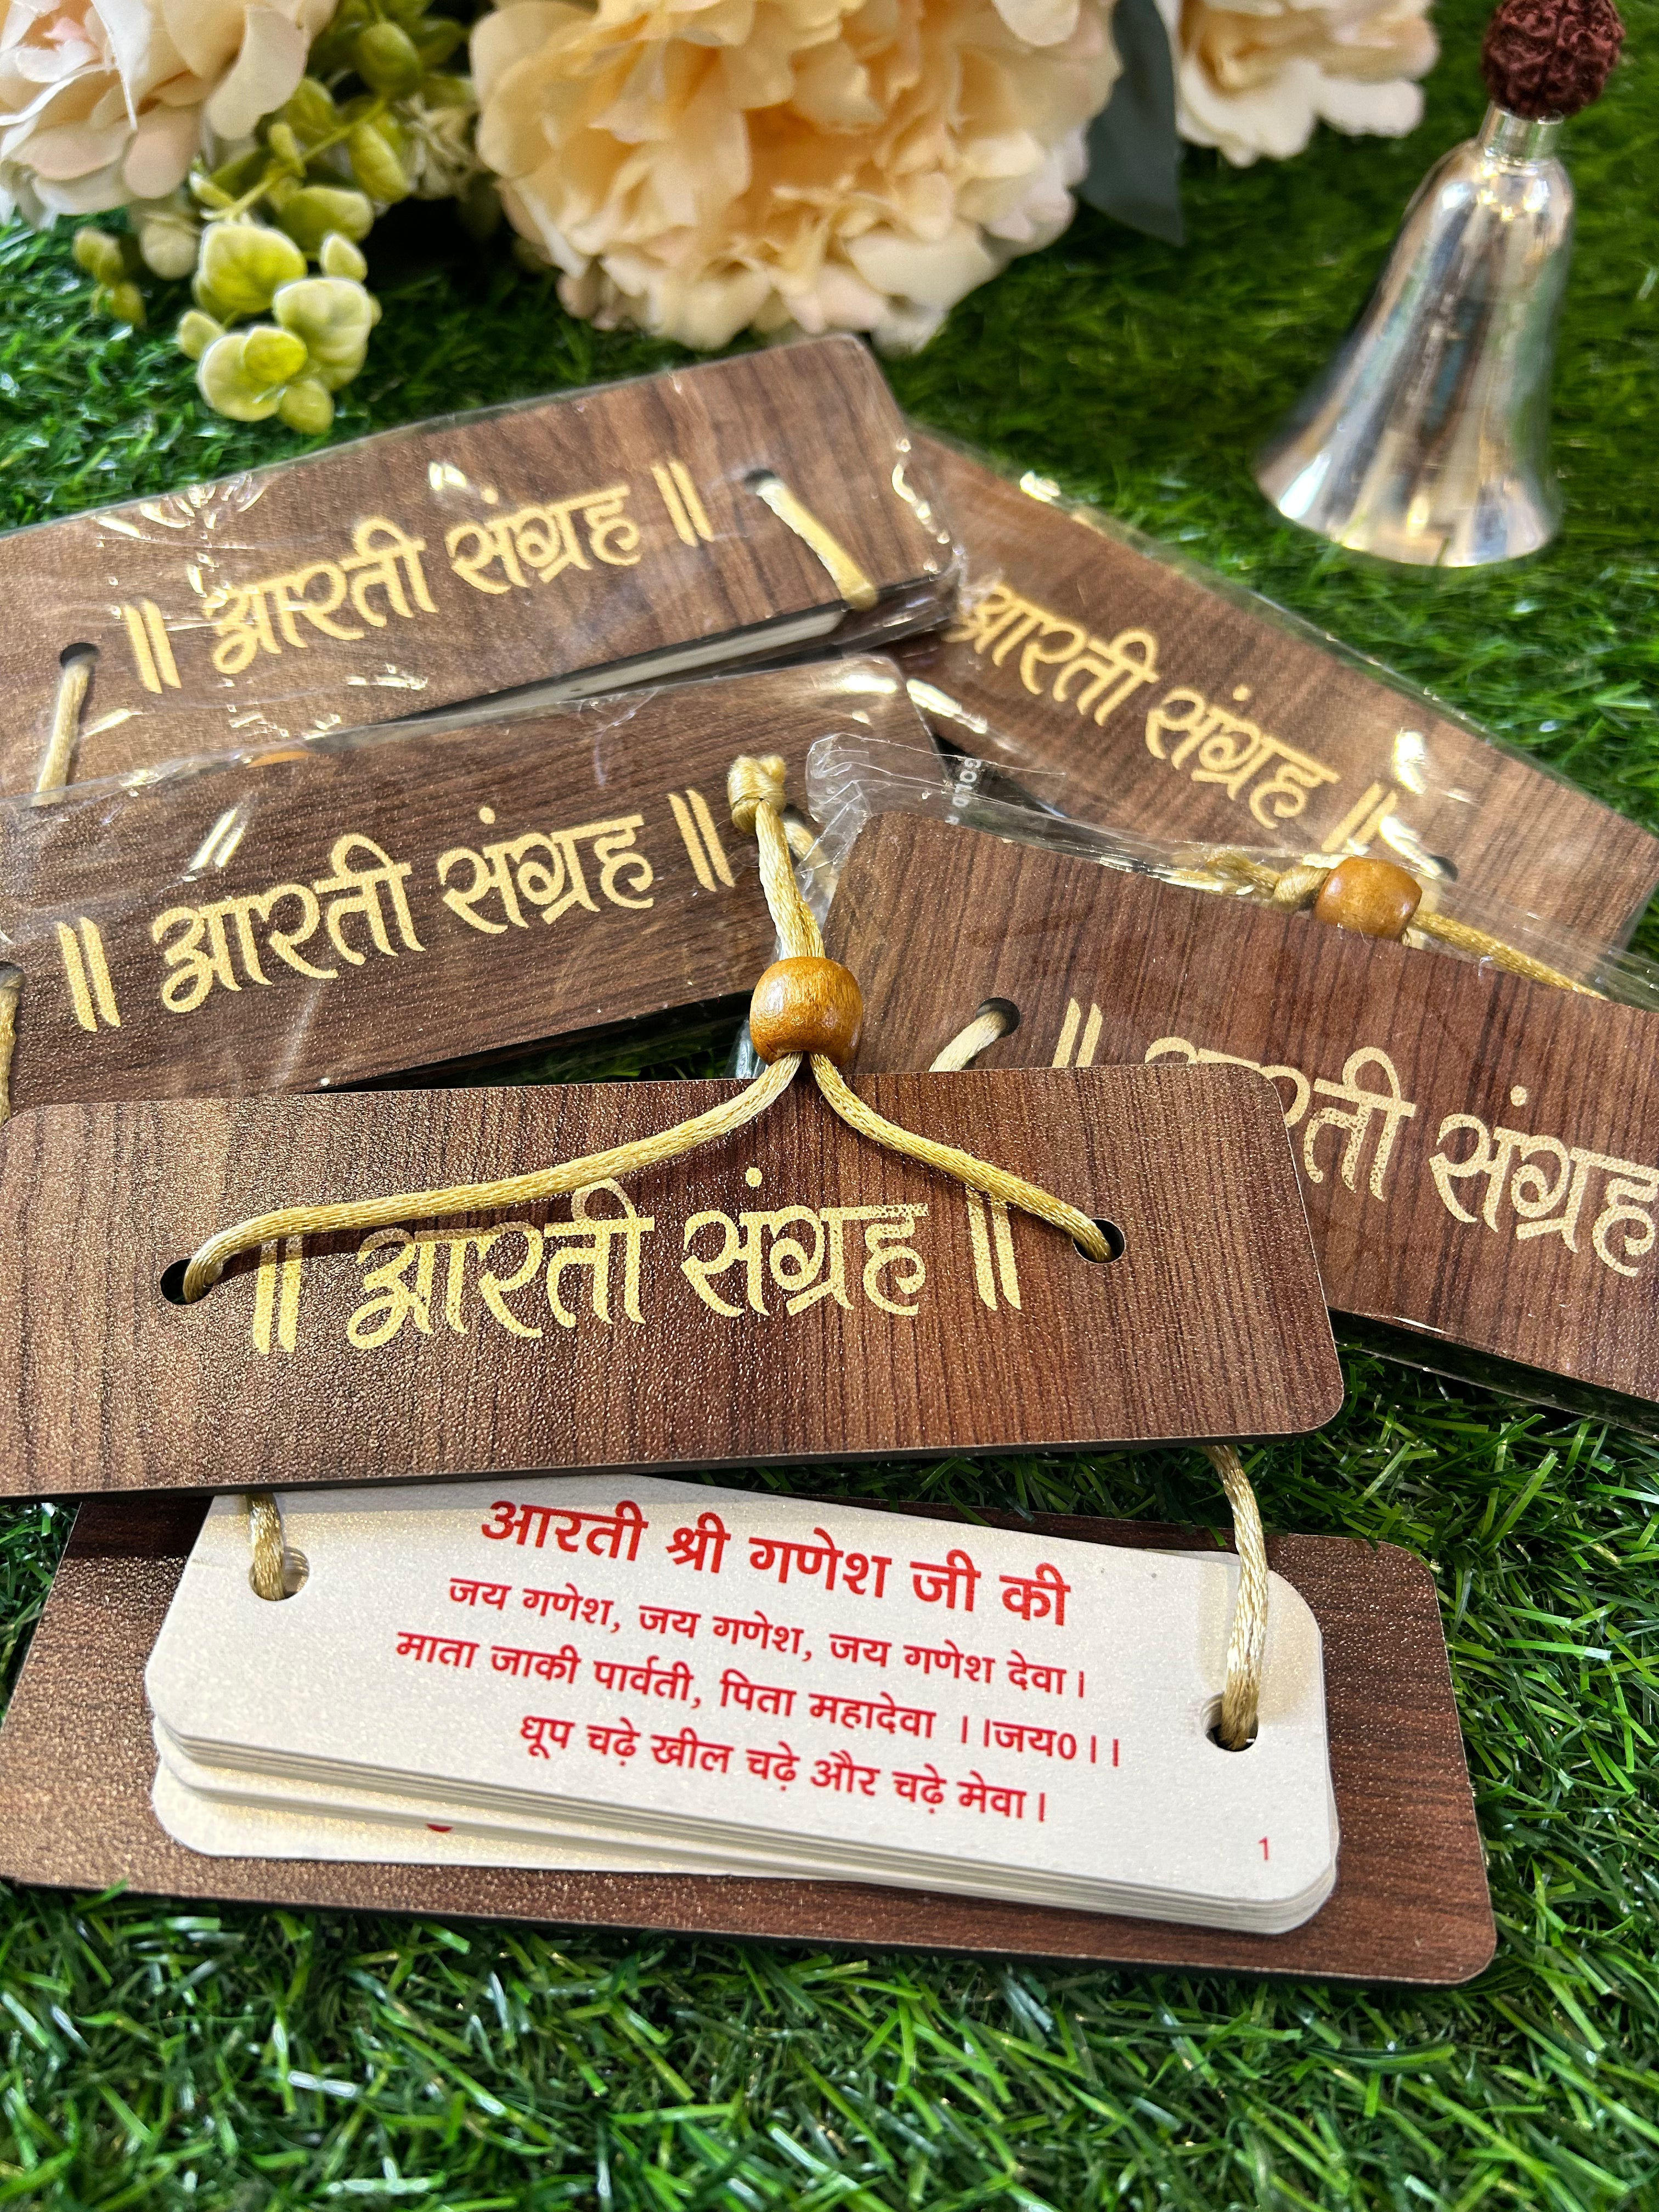 ॥ आरती संग्रह ॥
आरती संग्रह ॥
॥ आरती संग्रह ॥
GOLD
॥ आरती संग्रह
॥ आरती संग्रह ॥
आरती श्री गणेश जी की
जय गणेश, जय गणेश, जय गणेश देवा।
माता जाकी पार्वती, पिता महादेवा ।।जय0।।
धूप चढ़े खील चढ़े और चढ़े मेवा।
1